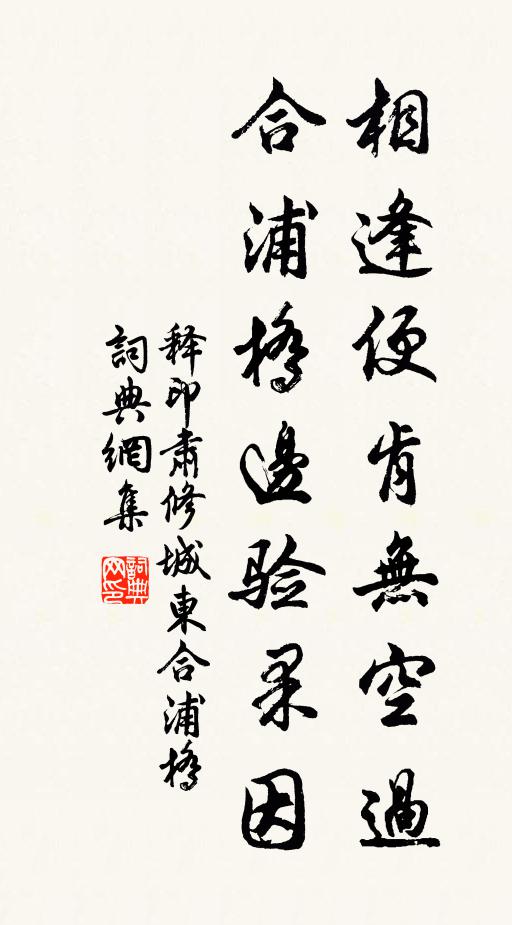 相逢便肯無空過
合浦橋邊验果因
释印肅修城東合浦橋
詞典網集
詞典网印